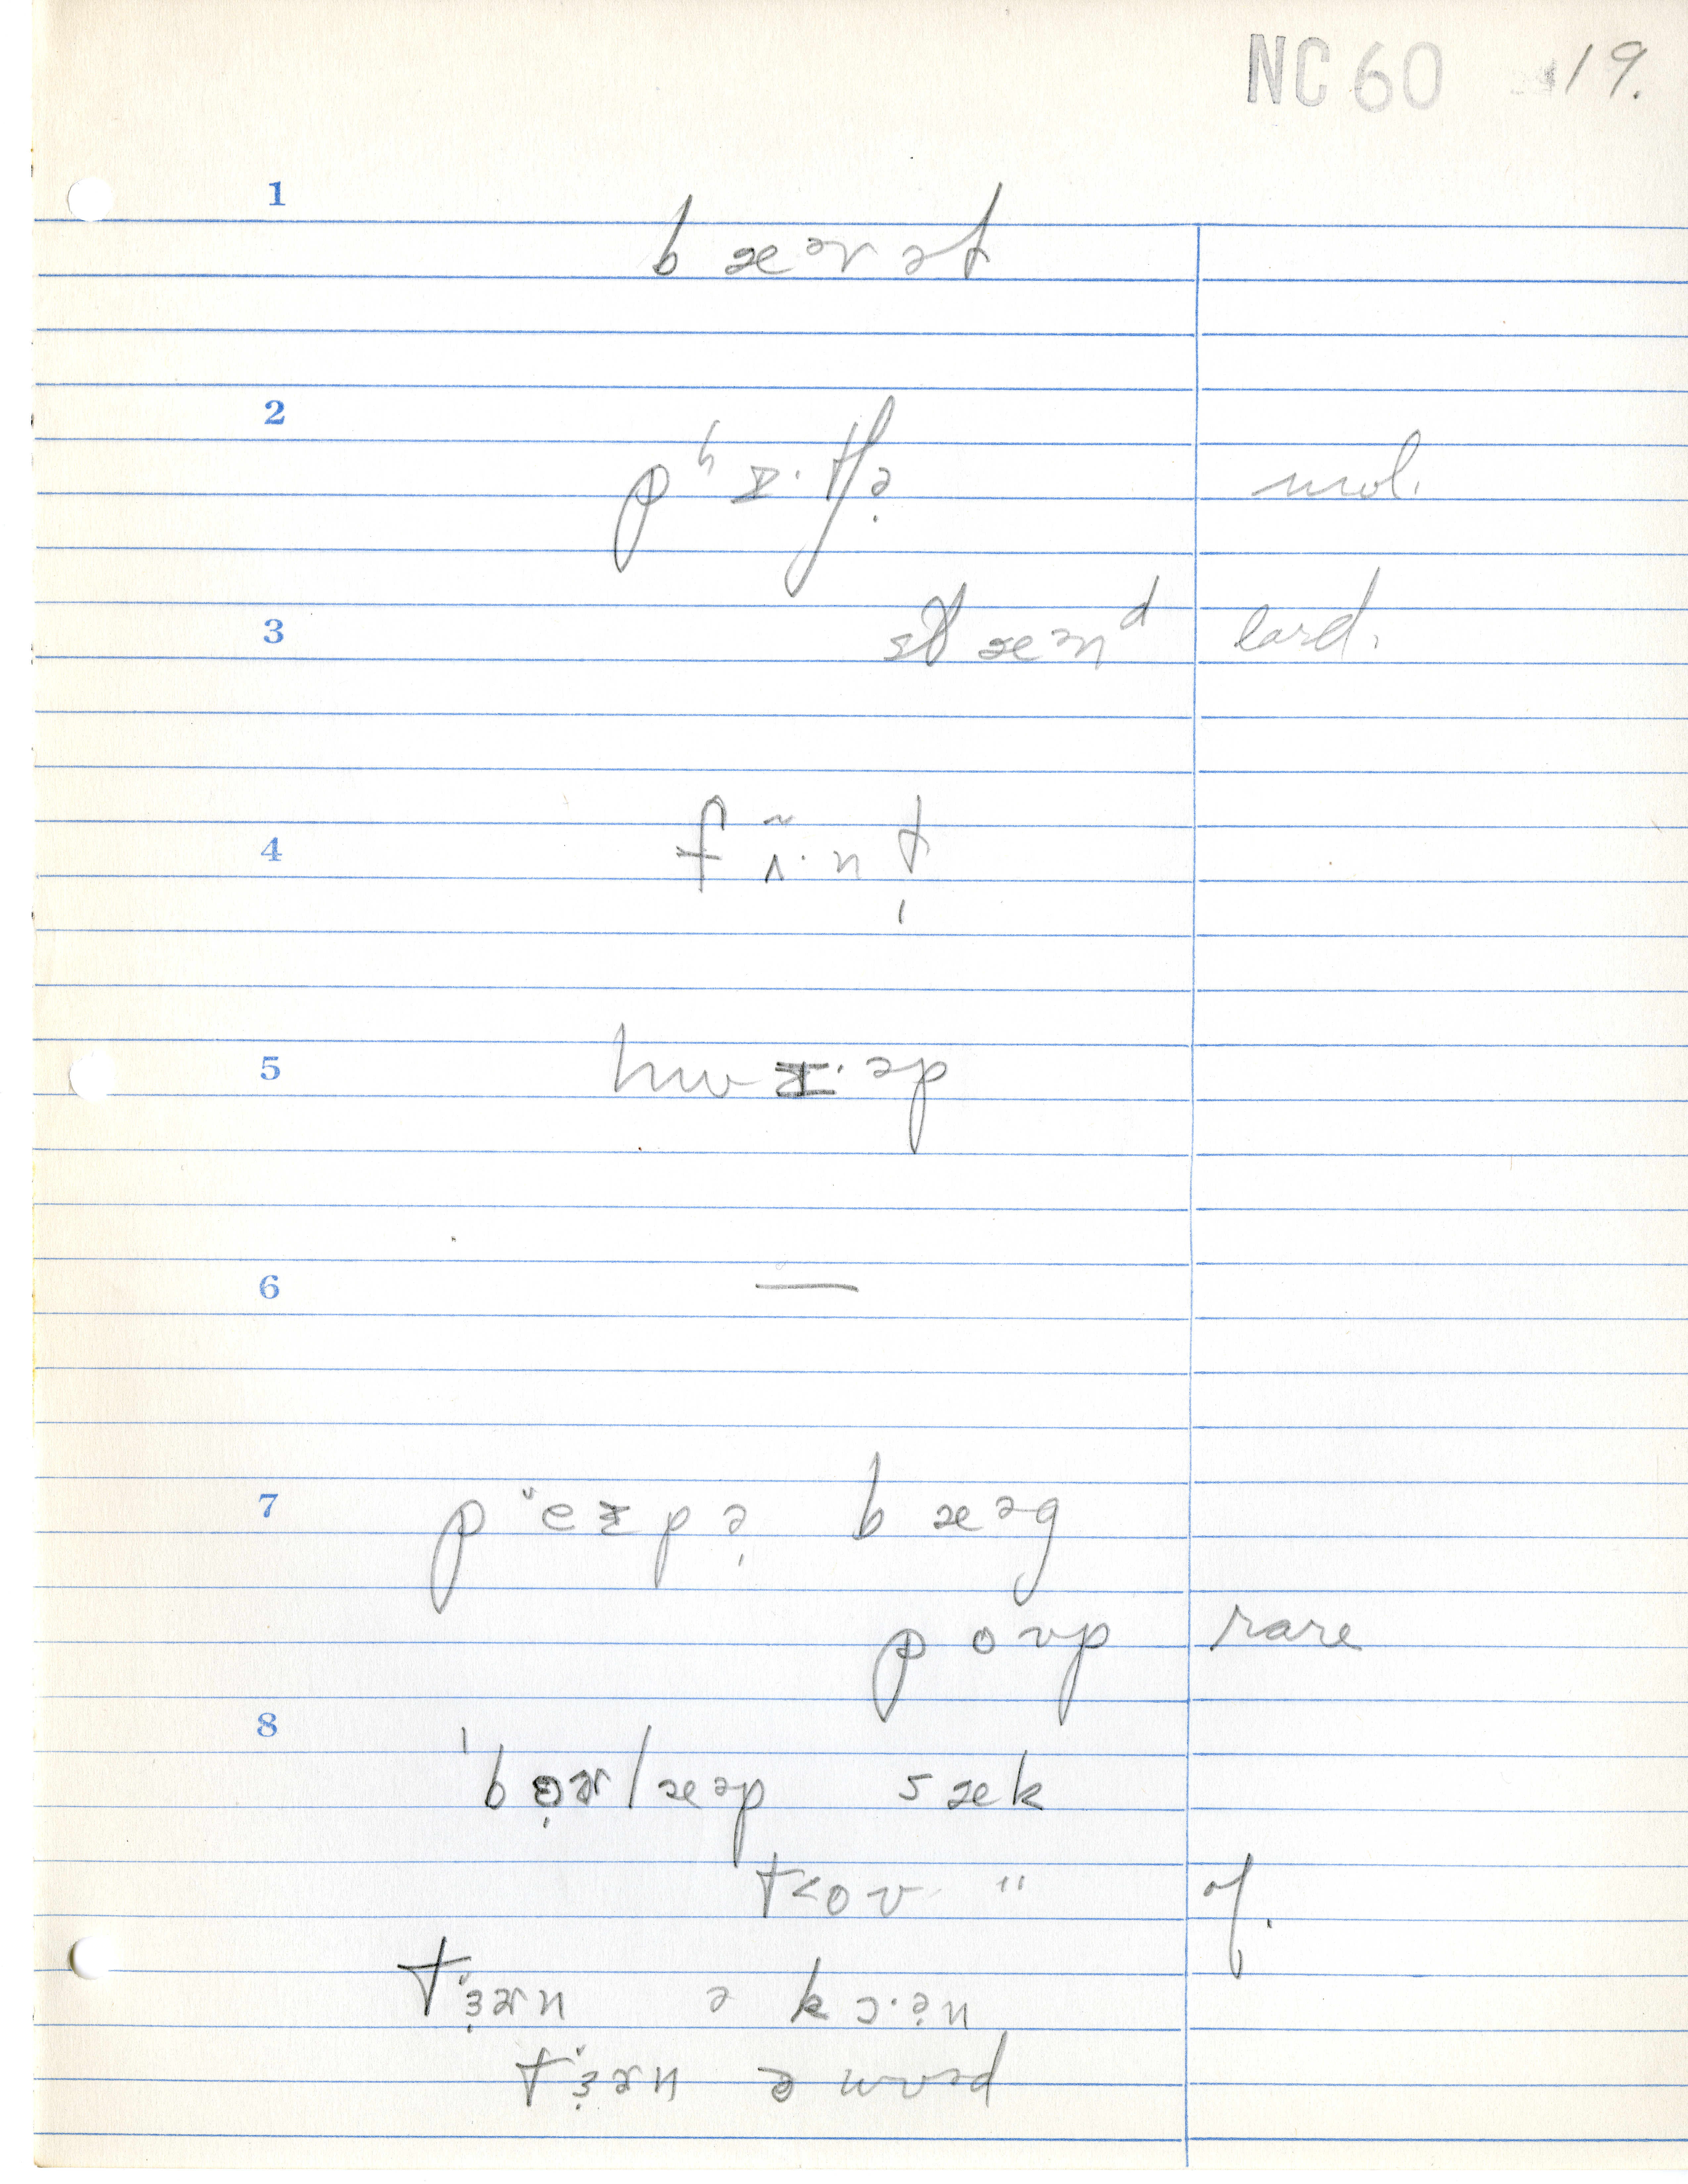 NC 60 19.
1
bæɚət
2
pʰɪ·tʃə̣ mol.
3
stæənᵈ lard.
4
f ʌ̃· n t̩
5
hwɪ·əp
6
—
7
pʿeɪpə̣ bæəg
poʊp rare
8
ˈbɚlæəp sæk
t<oʊ " of.
tʿɜ̣ɚn ə kɔ·ə̣n
tʿɜ̣ɚn ə wʊəd